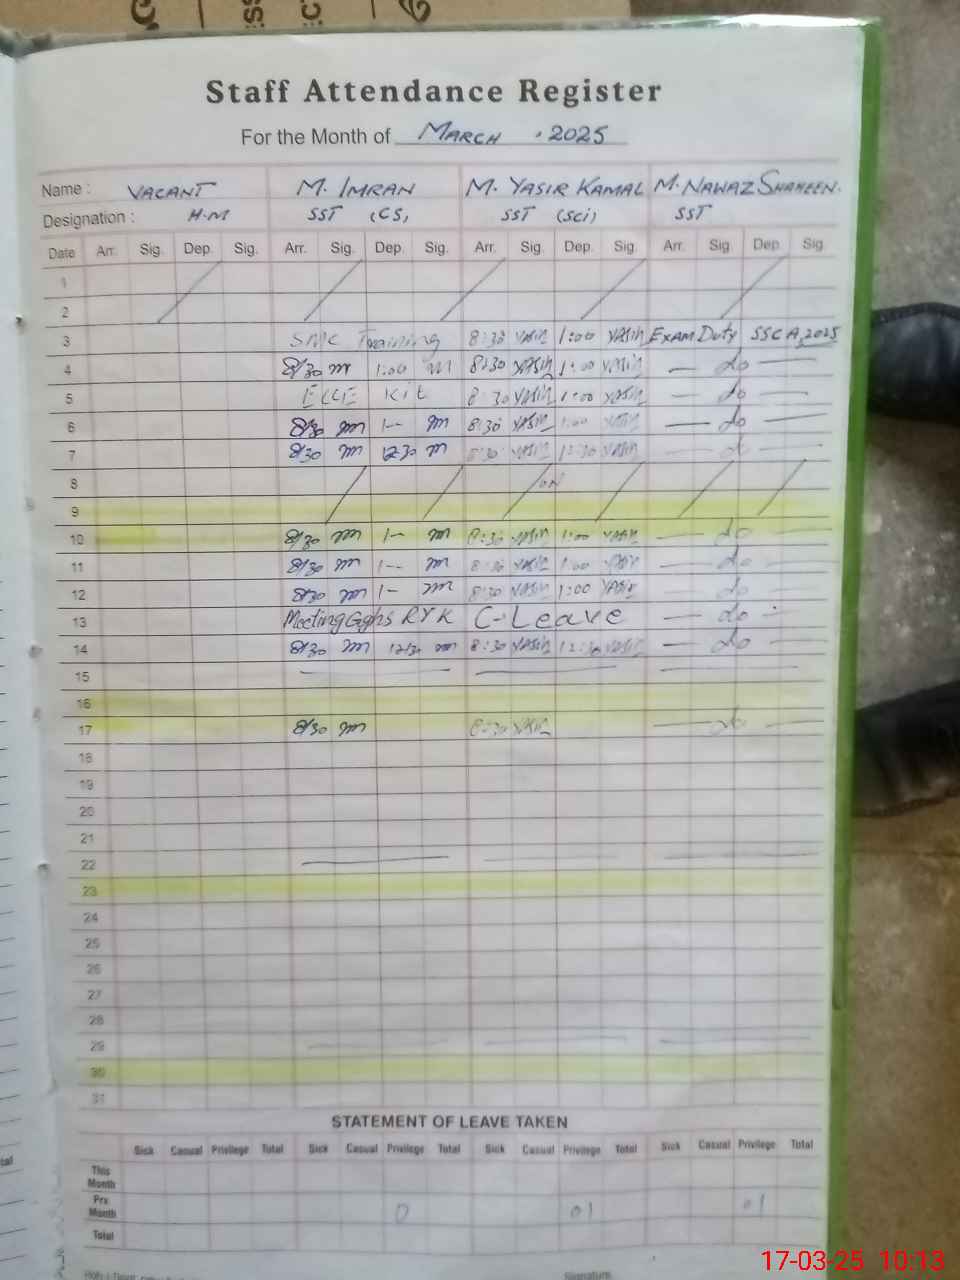 Staff Attendance Register
For the Month of MARCH . 2025
Name : VACANT M. IMRAN M. YASIR KAMAL M. NAWAZ SHAHEEN.
Designation : H.M SST (CS) SST (Sci) SST
Date Arr. Sig. Dep. Sig. Arr. Sig. Dep. Sig. Arr. Sig. Dep. Sig. Arr. Sig Dep. Sig.
1
2
3 SMC Training 8:30 YASIR 1:00 YASIR Exam Duty SSC A, 2025
4 8/30 m 1:00 m 8:30 YASIR 1:00 YASIR — do —
5 ECCE Kit 8:30 YASIR 1:00 YASIR — do —
6 8/30 m 1-- m 8:30 YASIR 1:00 YASIR — do —
7 8/30 m 12:30 m 8:30 YASIR 12:30 YASIR — do —
8
9
10 8/30 m 1-- m 8:30 YASIR 1:00 YASIR — do —
11 8/30 m 1-- m 8:30 YASIR 1:00 YASIR — do —
12 8/30 m 1- m 8:30 YASIR 1:00 YASIR — do —
13 Meeting Gghs RYK C-Leave — do —
14 8/30 m 12/30 m 8:30 YASIR 12:30 YASIR — do —
15
16
17 8/30 m 8:30 YASIR — do —
18
19
20
21
22
23
24
25
26
27
28
29
30
31
STATEMENT OF LEAVE TAKEN
Sick Casual Privilege Total Sick Casual Privilege Total Sick Casual Privilege Total Sick Casual Privilege Total
This Month
Prv. Month 0 01 01
Total
Signature
17-03-25 10:13